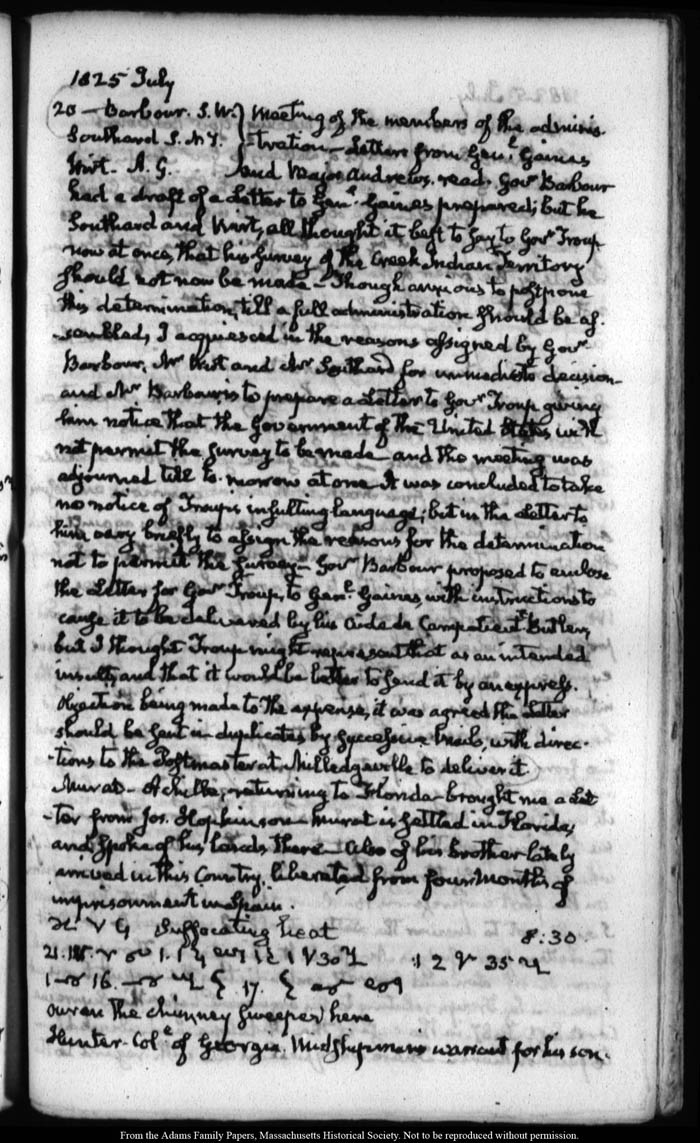 1825 July
20 — Barbour. S. W. } Meeting of the members of the adminis-
Southard S. N. Y. } -tration — Letters from Genl. Gaines
Wirt. A. G. } and Major Andrews. read. Govr. Barbour
had a draft of a Letter to Genl. Gaines prepared; but he
Southard and Wirt, all thought it best to say to Govr. Troup
now at once, that his survey of the Creek Indian Territory
should not now be made — Though anxious to postpone
this determination, till a full administration should be as-
-sembled, I acquiesced in the reasons assigned by Govr.
Barbour, Mr. Wirt and Mr. Southard for immediate decision —
and Mr. Barbour is to prepare a Letter to Govr. Troup giving
him notice that the Government of the United States will
not permit the survey to be made — and the meeting was
adjourned till to-morrow at one. It was concluded to take
no notice of Troup's insulting language; but in the Letter to
him very briefly to assign the reasons for the determination
not to permit the survey — Govr. Barbour proposed to enclose
the Letter for Govr. Troup, to Genl. Gaines, with instructions to
cause it to be delivered by his Aid de Camp Butler,
but I thought Troup might represent that as an intended
insult; and that it would be better to send it by an express.
Objection being made to the expense, it was agreed the Letter
should be sent in duplicates by successive mails, with direc-
-tions to the Postmaster at Milledgeville to deliver it.
Murat — Achille, returning to Florida brought me a Let-
-ter from Jos. Hopkinson — Murat is settled in Florida,
and spoke of his lands there — Also of his brother lately
arrived in this Country, liberated from four Months of
imprisonment in Spain.
Suffocating heat 8:30
21.
16. 17.
the chimney sweeper here
Hunter. Col. of Georgia. Midshipman's warrant for his son.
From the Adams Family Papers, Massachusetts Historical Society. Not to be reproduced without permission.